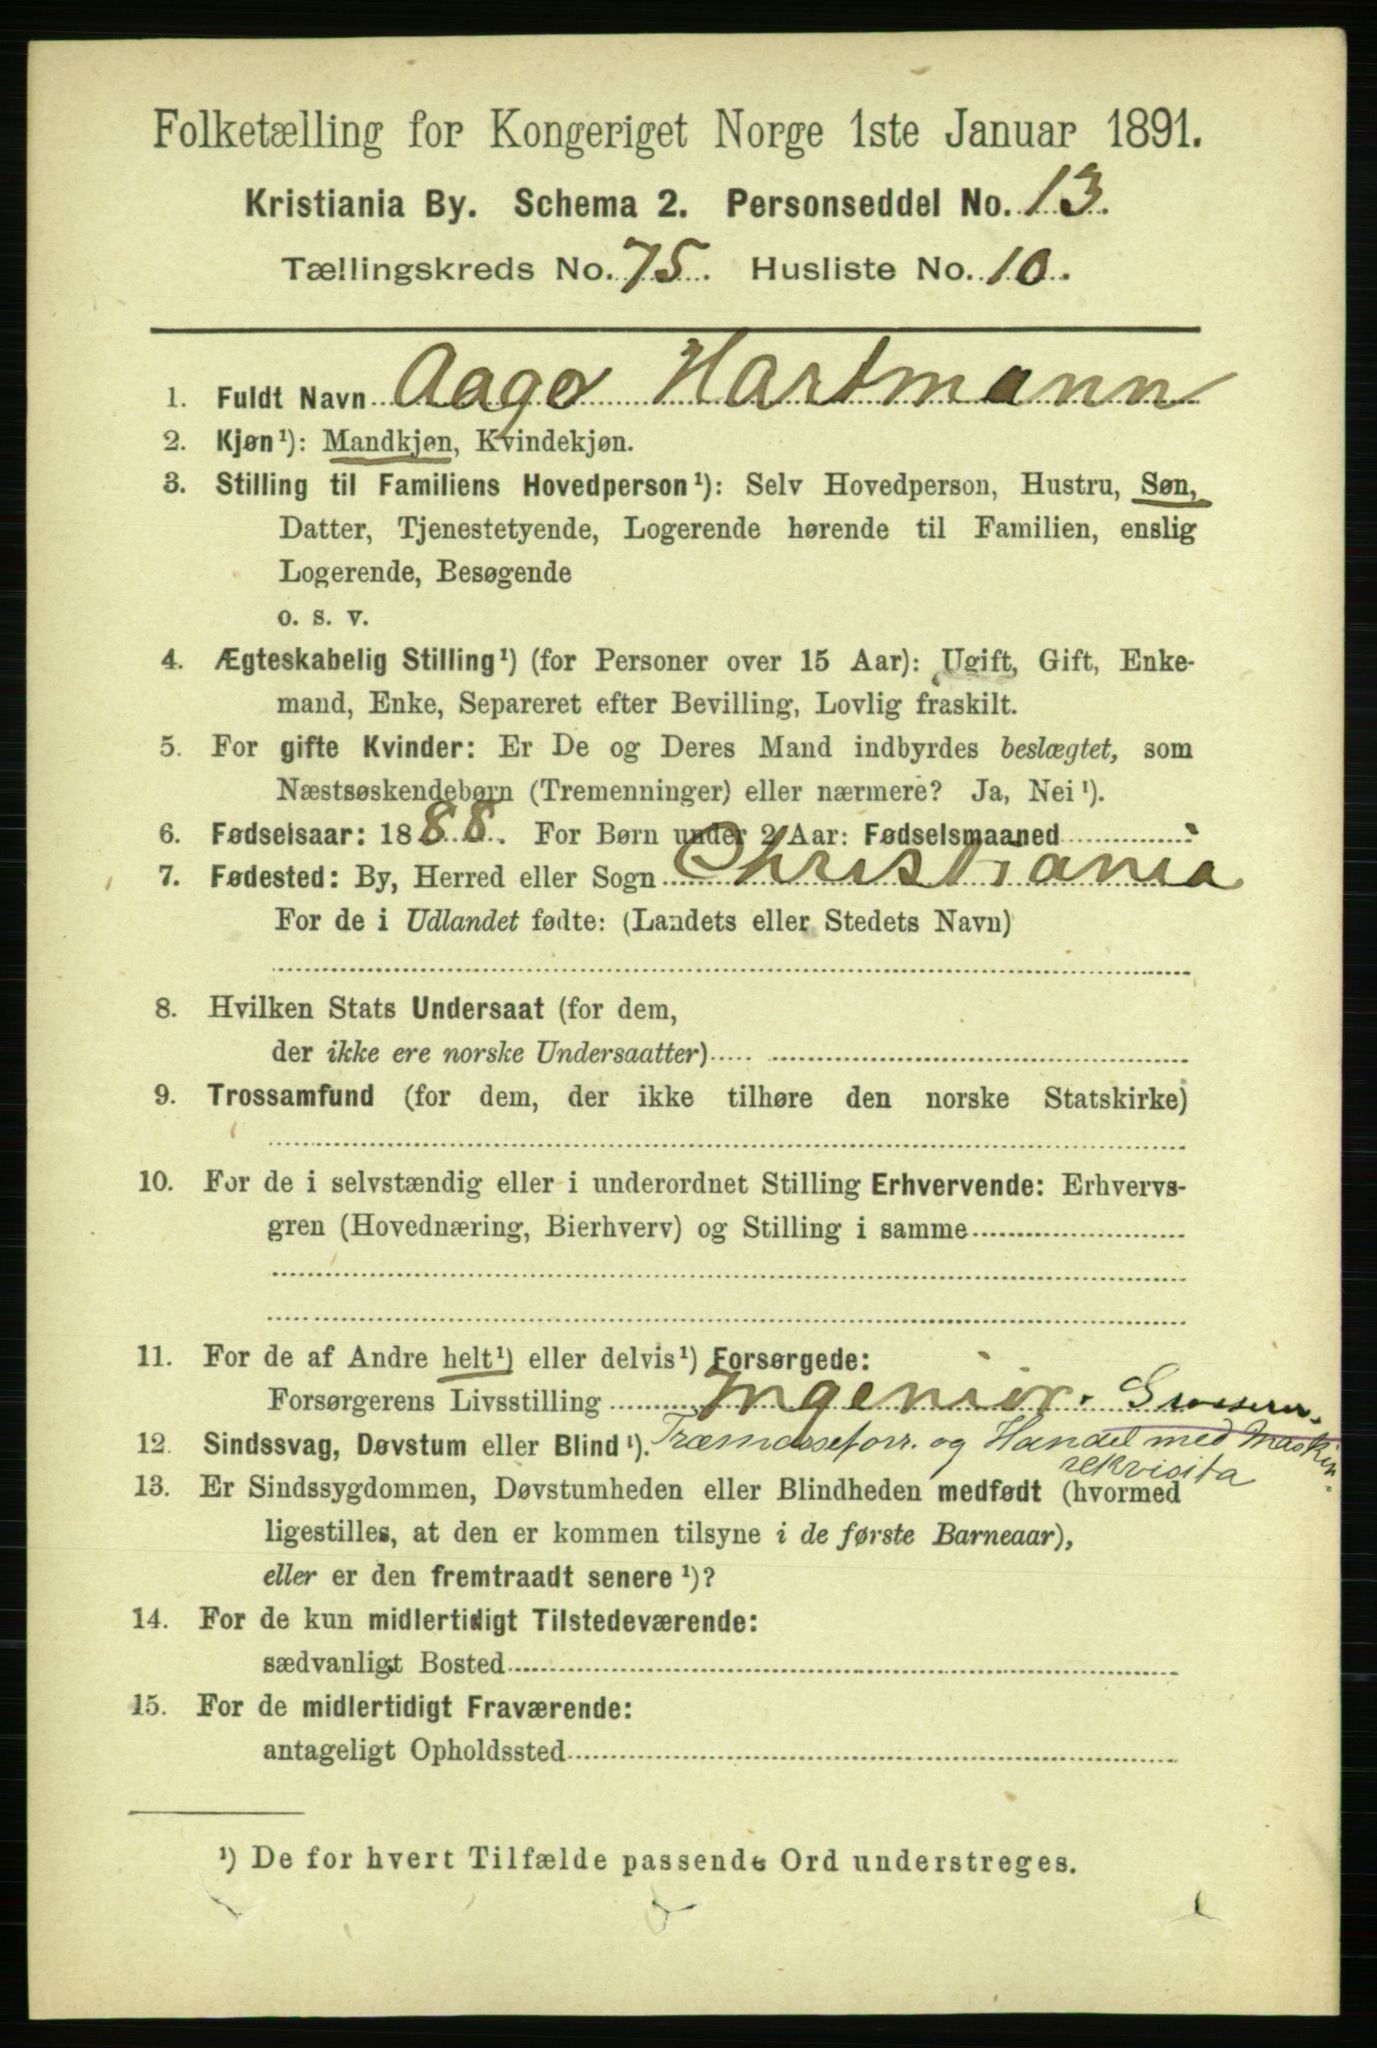 Folketælling for Kongeriget Norge 1ste Januar 1891.
Kristiania By. Schema 2. Personseddel No. 13.
Tællingskreds No. 75. Husliste No. 10.
1. Fuldt Navn Aage Hartmann
2. Kjøn¹): Mandkjøn, Kvindekjøn.
3. Stilling til Familiens Hovedperson¹): Selv Hovedperson, Hustru, Søn,
Datter, Tjenestetyende, Logerende hørende til Familien, enslig
Logerende, Besøgende
o. s. v.
4. Ægteskabelig Stilling¹) (for Personer over 15 Aar): Ugift, Gift, Enke-
mand, Enke, Separeret efter Bevilling, Lovlig fraskilt.
5. For gifte Kvinder: Er De og Deres Mand indbyrdes beslægtet, som
Næstsøskendebørn (Tremenninger) eller nærmere? Ja, Nei¹).
6. Fødselsaar: 1888. For Børn under 2 Aar: Fødselsmaaned
7. Fødested: By, Herred eller Sogn Christiania
For de i Udlandet fødte: (Landets eller Stedets Navn)
8. Hvilken Stats Undersaat (for dem,
der ikke ere norske Undersaatter)
9. Trossamfund (for dem, der ikke tilhøre den norske Statskirke)
10. For de i selvstændig eller i underordnet Stilling Erhvervende: Erhvervs-
gren (Hovednæring, Bierhverv) og Stilling i samme
11. For de af Andre helt¹) eller delvis¹) Forsørgede:
Forsørgerens Livsstilling Ingeniør. Grosserer.
12. Sindssvag, Døvstum eller Blind¹). Træmasseforr. og Handel med Maskin-
rekvisita
13. Er Sindssygdommen, Døvstumheden eller Blindheden medfødt (hvormed
ligestilles, at den er kommen tilsyne i de første Barneaar),
eller er den fremtraadt senere¹)?
14. For de kun midlertidigt Tilstedeværende:
sædvanligt Bosted
15. For de midlertidigt Fraværende:
antageligt Opholdssted
¹) De for hvert Tilfælde passende Ord understreges.